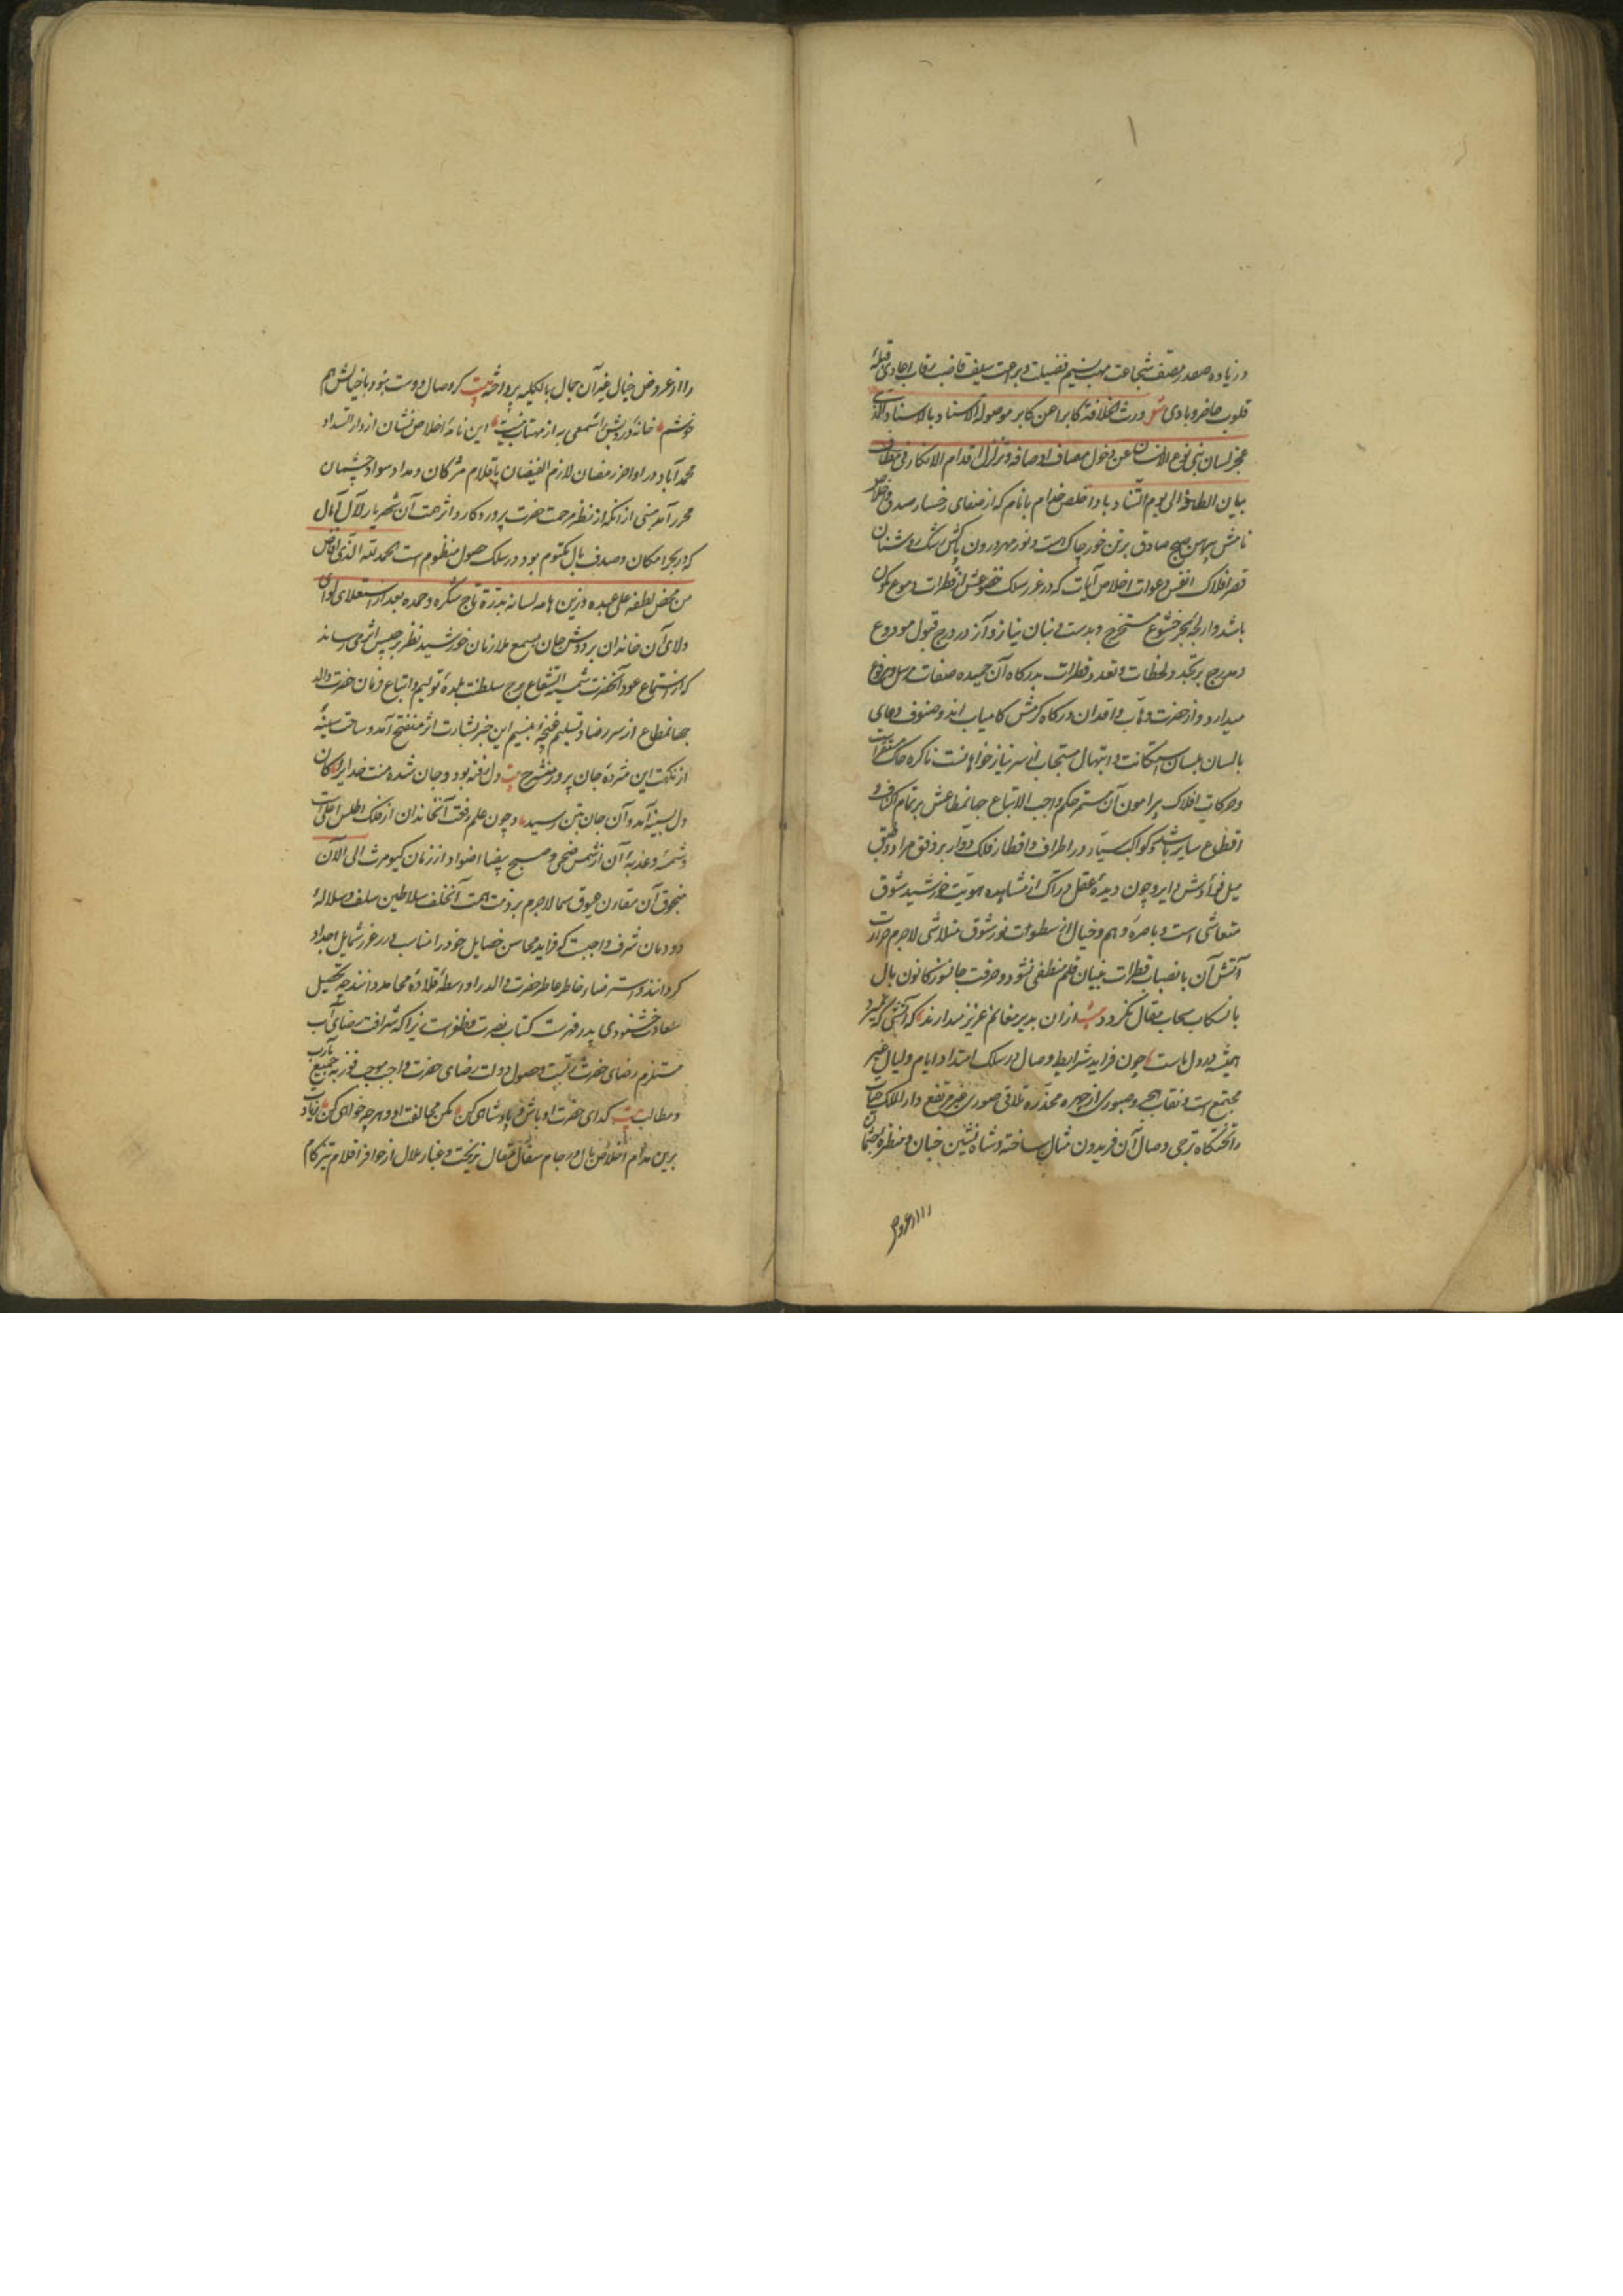 در زیاده صفدر مصنف شجاعت مهب نسیم فضیلت و براحت سیف قاضب رقاب اعادی قبلهٔ
قلوب حاضر و بادی شعر ورث الخلافة کابرا عن کابر موصولة الاسناد بالاسناد الذی
عجز لسان بنی نوع الانسان عن دخول مصاف اوصافه و تزلزل اقدام الافکار فی مطاف
بیان الطافه الی یوم التناد باد اخلص خدام بانام که از صفای رخسار صدق و اخلاص
نامش پیراهن صبح صادق بر تن خور چاکست و نور مهر درون رشک روشنان
قصر افلاک انفس دعوات اخلاص آیات که درغرر سلک خضوعش از قطرات دموع مکنون
باشد و از لجهٔ بحر خشوع مستخرج و بدست بنان نیاز و آز در درج قبول مودوع
و مدرج بر تجدد لحظات و تعدد فطرات بدرگاه آن حمیده صفات مرسل و مرفوع
میدارد و از حضرت وهاب فاقدان درگاه کرمش کامیاب اند و صنوف دعای
بالسان بلسان استکانت و ابتهال مستجاب از سر نیاز خواهانست تا کره خاک مستقرات
و حرکات افلاک پیرامون آن مستمر حکم واجب الاتباع جهانمطاعش بر تمام اکناف و
اقطاع سایر باشد و کواکب سیار در اطراف و اقطار فلک دوار بر وفق مراد و طبق
میل فوادش دایر و چون دیدهٔ عقل دراک از مشاهده هویت خورشید شوق
متعاشی است و باصرهٔ وهم و خیال از سطوت نور شوق متلاشی لاجرم حرارت
آتش آن بانصباب قطرات بیان قلم منطفی نشود و حرقت جانسوز کانون بال
بانسکاب سحاب مقال نگردد بیت ازان بدیر مغانم عزیز میدارند که آتشی که نمیرد
همیشه در دل ماست چون فراید شرایط وصال در سلک امتداد ایام و لیال غیر
مجتمع است و نقاب هجر و صبوری از چهره مخدره تلاقی صوری غیر مرتفع دار الملک حیات
را تختگاه ترجی وصال آن فریدون مثال ساخته و شاه نشین جنان و منظره چشمان
را از عروض خیال غیر آن جمال بالکلیه پرداخته بیت گر وصال دوست نبود با خیالش هم
خوشم خانهٔ درویش را شمعی به از مهتاب نیست این نامهٔ اخلاص نشان از دار السداد
محمد آباد در اواخر رمضان لازم الفیضان باقلام مژگان و مداد سواد چشمان
محرر آمد مبنی از آنکه از نظر مرحمت حضرت پروردگار و اثر همت آن شهریار لآلی آمال
که در بحر امکان و صدف بال مکتوم بود در سلک حصول منظومست الحمد لله الذی افاض
من محض لطفه علی عبده و زین هامة لسانه بدرة تاج شکره و حمده بعد از استعلای لوای
ولای آن خاندان بر دوش جان بسمع ملازمان خورشید نظر برجیس اثر می رساند
که از استماع عود آنحضرت شمسة الشعاع ببرج سلطنت بلده تولیم و اتباع فرمان حضرت والد
جهانمطاع از سر رضا و تسلیم غنچهٔ بنسیم این خبر بشارت اثر منفتح آمد و ساحت سینه
از نکهت این مژدهٔ جان پرور منشرح بیت دل رفته بود و جان شده منت خدایرا کان
دل بسینه آمد و آن جان بتن رسید و چون علم رفعت آنخاندان از فلک اطلس اعلی است
و شمسه و عذبهٔ آن از شمس ضحی و صبح بیضا اضوا و از زمان کیومرث الی الآن
منجوق آن مقارن عیوق سما لاجرم بر ذمت همت آنخلف سلاطین سلف و سلالهٔ
دودمان شرف واجبست که فراید محاسن خصایل خود را مناسب درر غرر شمایل اجداد
گردانند و استرضاء خاطر عاطر حضرت والد را واسطهٔ قلادهٔ محامد دانند چه تحصیل
سعادت خشنودی پدر فهرست کتاب نصرت و ظفرست زیرا که شرافت رضای آب
مستلزم رضای حضرت ربست و حصول دولت رضای حضرت واجب موجب فوز بجمیع مآرب
و مطالب بیت گدای حضرت او باش و پادشاهی کن مکن مخالفت او و هرچه خواهی کن زیادت
برین مدام اخلاص بال در جام سفال مقال نریخت و غبار ملال از حوافر اقلام تیزگام